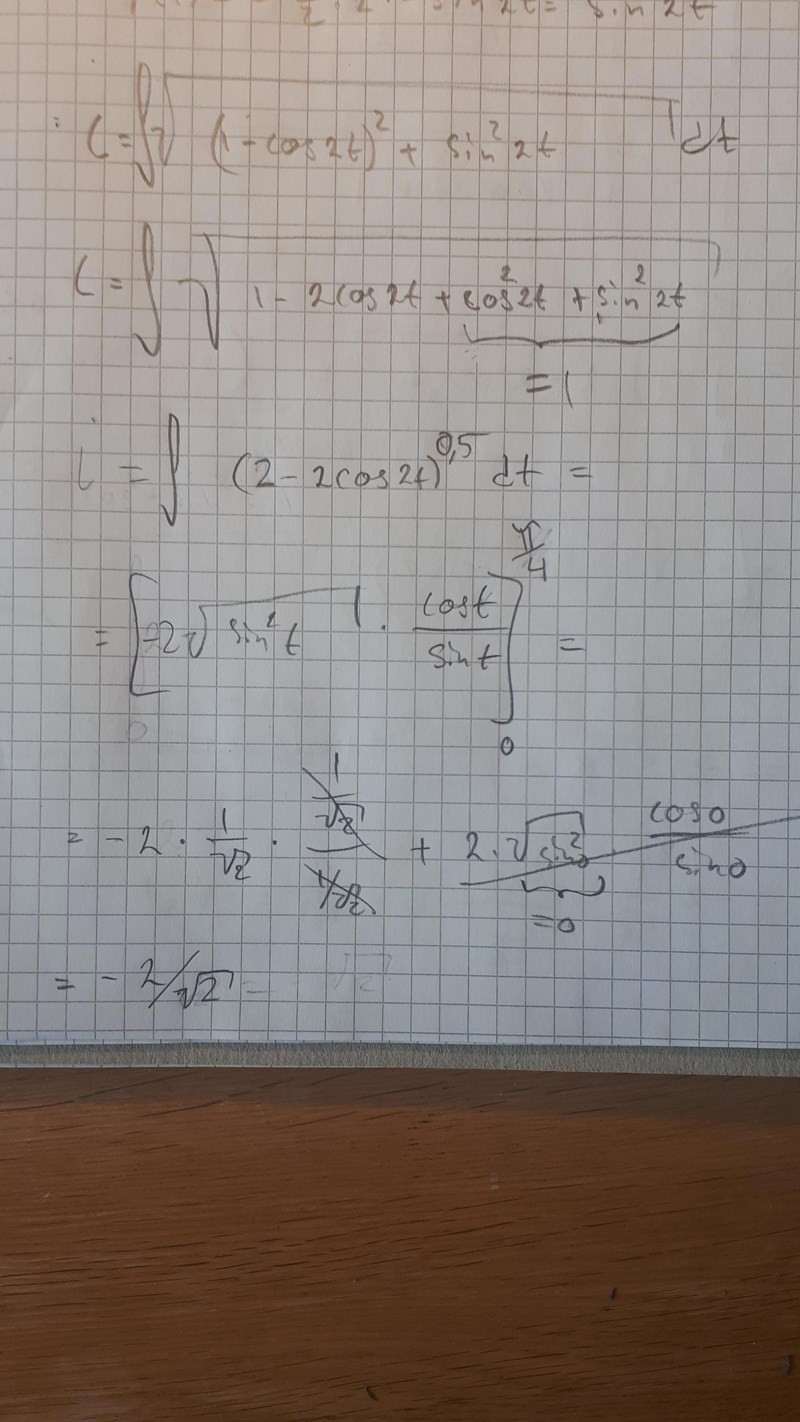 sin 2t = sin 2t
L = ∫ √((1 - cos 2t)² + sin² 2t) dt
L = ∫ √(1 - 2cos 2t + cos² 2t + sin² 2t)
= 1
L = ∫ (2 - 2cos 2t)^0,5 dt =
= [-2√(sin² t) · cos t / sin t]_0^(π/4) =
= -2 · 1/√2 · (1/√2)/(1/√2) + 2 · √(sin² 0) cos 0 / sin 0
= 0
= - 2/√2 = √2